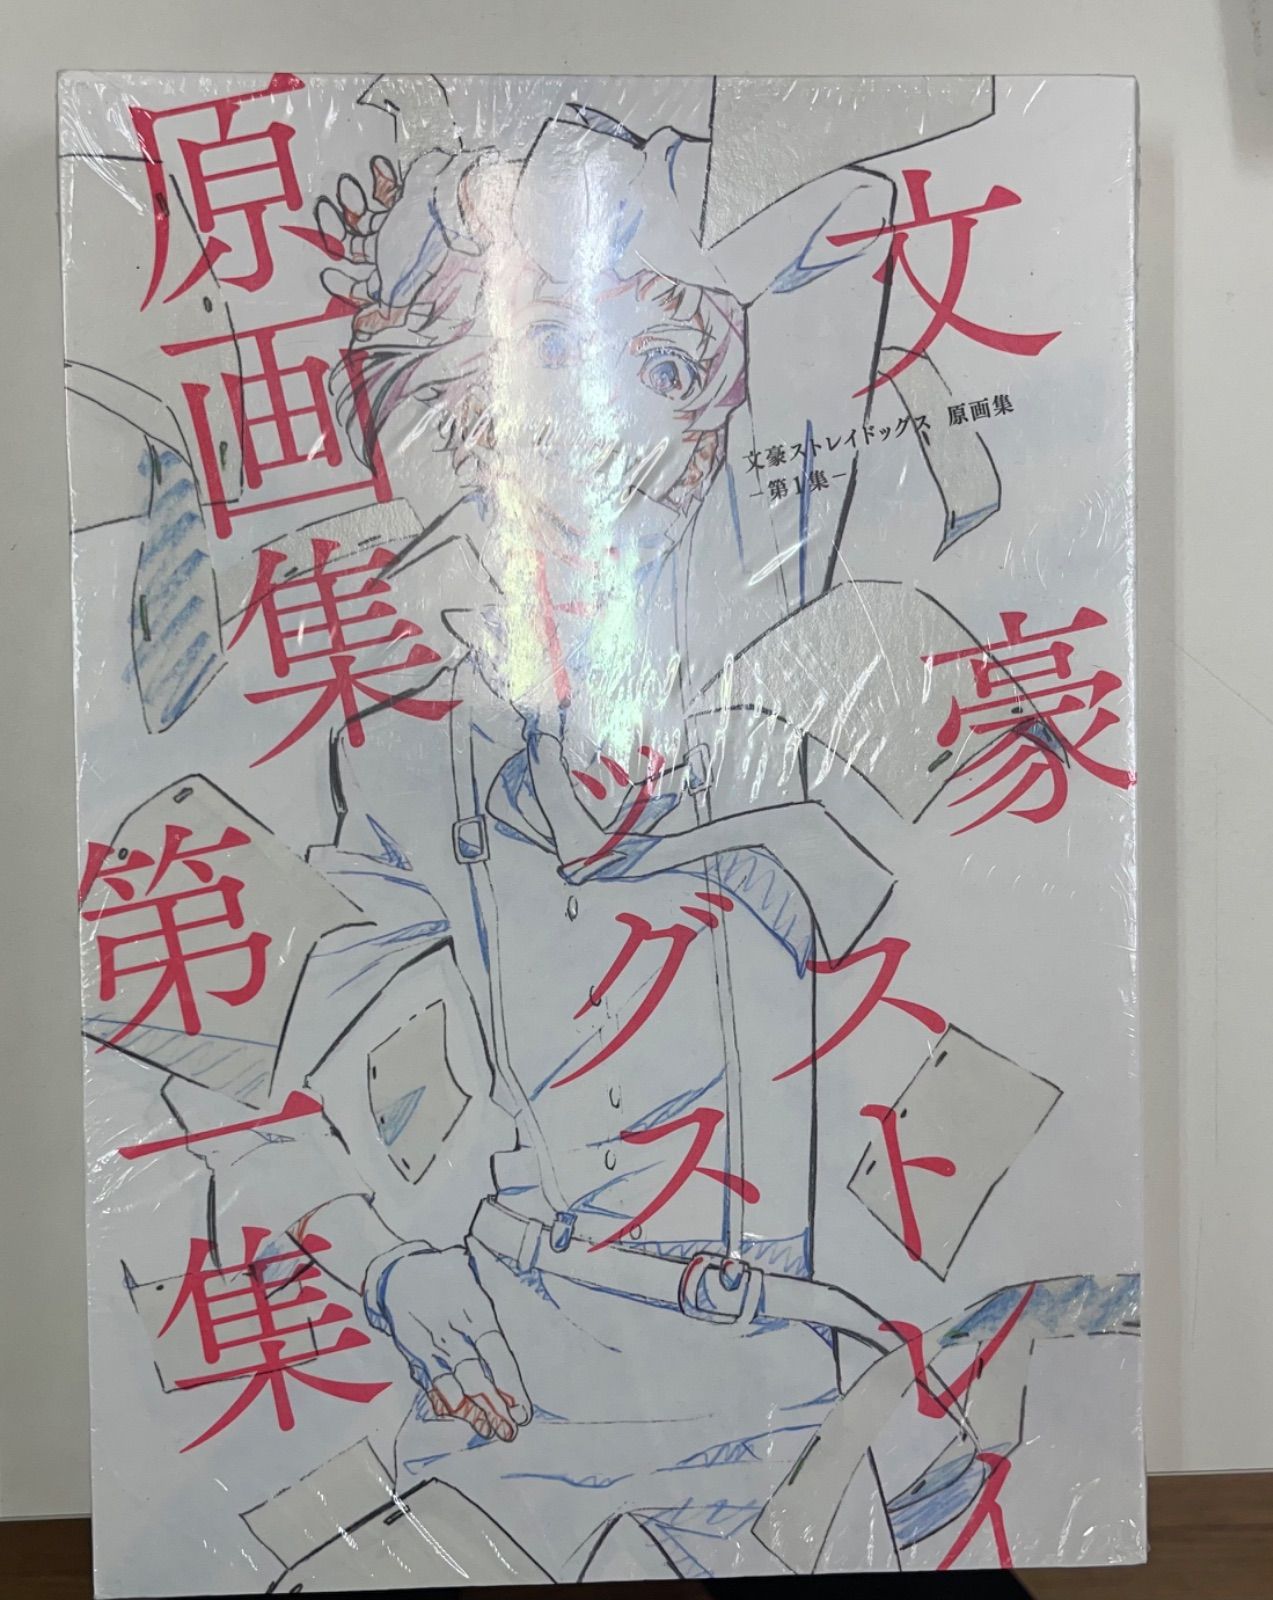 文豪ストレイ
ドッグス
原画集
第一集
文豪ストレイドッグス 原画集
－第1集－